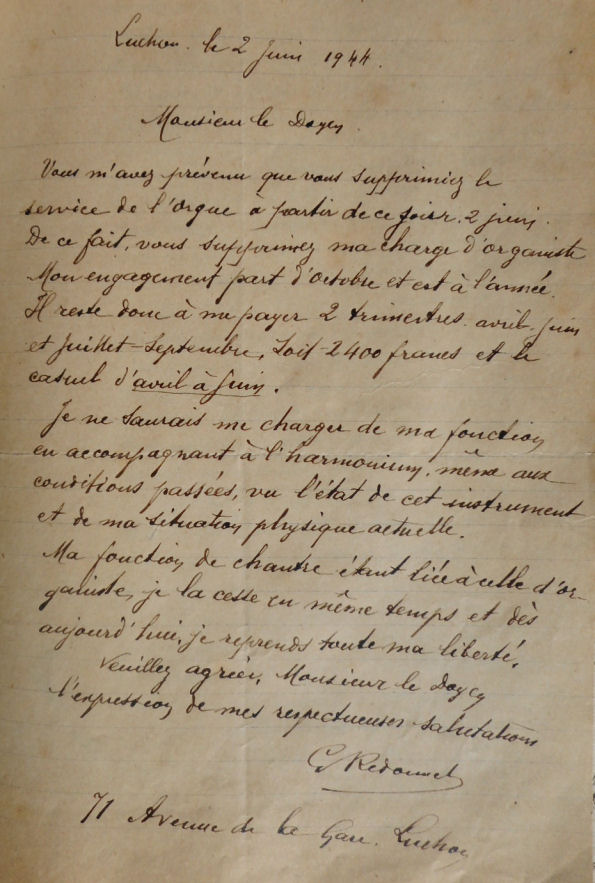 Luchon. le 2 Juin 1944.
Monsieur le Doyen.
Vous m'avez prévenu que vous supprimiez le
service de l'orgue à partir de ce jour. 2 juin.
De ce fait, vous supprimez ma charge d'organiste
Mon engagement part d'octobre et est à l'année.
Il reste donc à me payer 2 trimestres. avril. juin
et Juillet-Septembre, Soit 2400 francs et le
casuel d'avril à Juin.
Je ne saurais me charger de ma fonction
en accompagnant à l'harmonium, même aux
conditions passées, vu l'état de cet instrument
et de ma situation physique actuelle.
Ma fonction de chantre étant liée à celle d'or-
ganiste, je la cesse en même temps et dès
aujourd'hui, je reprends toute ma liberté.
Veuillez agréer, Monsieur le Doyen
l'expression de mes respectueuses salutations
G. Redonnet
71 Avenue de la Gare. Luchon